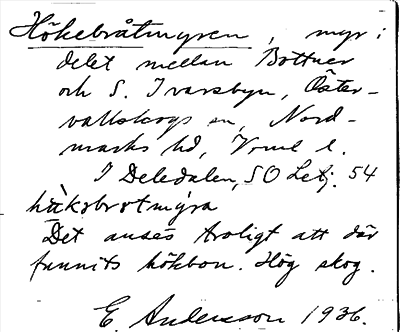 Hökebråtmyren, myr i
delet mellan Bottner
och S. Ivarsbyn, Öster-
vallskogs sn, Nord-
marks hd, Vrml l.
I Deledalen, SO Letj. 54
hä̀ksbrotmýra
Det anses troligt att där
funnits hökbon. Hög skog.
E. Andersson 1936.